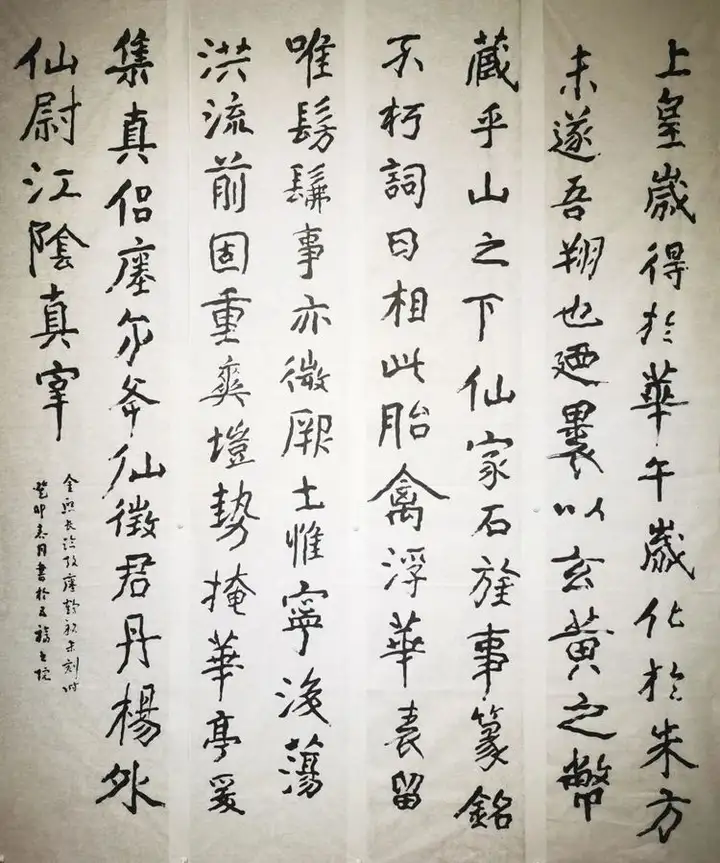 上皇歲得於華午歲化於朱方
未遂吾翔也廼裹以玄黃之幣
藏乎山之下仙家石旌事篆銘
不朽詞曰相此胎禽浮華表留
唯髣髴事亦微厥土惟寧後蕩
洪流前固重爽塏勢掩華亭爰
集真侶瘞尔夆仙徵君丹楊外
仙尉江陰真宰
癸卯書於五福書院